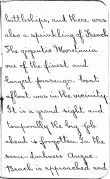 battleships, and there was
also a sprinkling of French
The gigantic Mauretania
one of the finest and
largest passenger boat
afloat was in the vicinity
It is a grand sight and
temporally the big job
ahead is forgotten. In the
semi-darkness Anzac
Beach is approached and